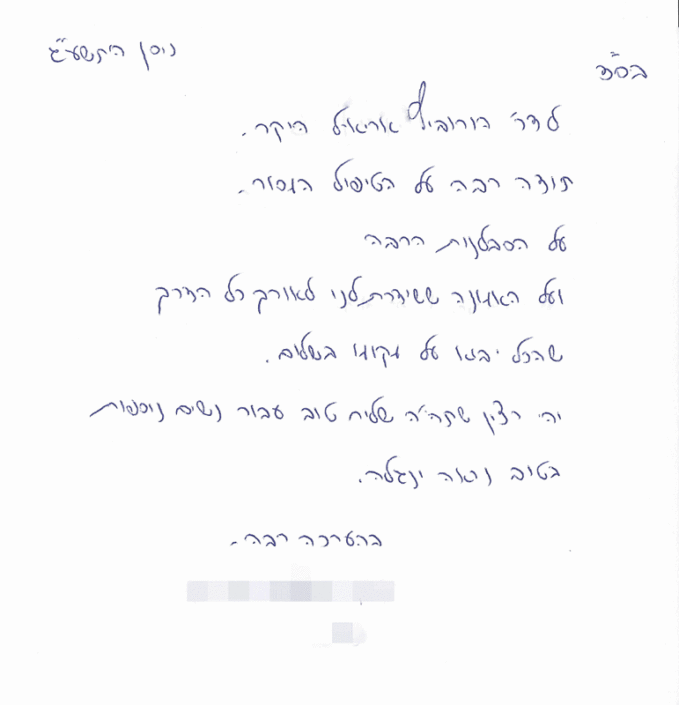 בס"ד
ניסן ה'תשע"ג
לדר' הורוביץ אוריאל היקר.
תודה רבה על הטיפול המסור.
על הסבלנות הרבה
ועל האמונה ששידרת לנו לאורך כל הדרך
שהכל יבוא על מקומו בשלום.
יהי רצון שתהיה שליח טוב עבור נשים נוספות
בטוב נראה ונגלה.
בהערכה רבה.